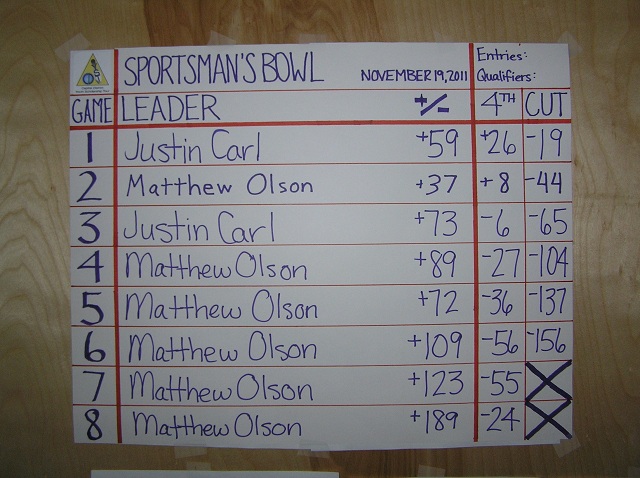 SPORTSMAN'S BOWL NOVEMBER 19, 2011 Entries:
Qualifiers:
GAME LEADER +/- 4TH CUT
1 Justin Carl +59 +26 -19
2 Matthew Olson +37 +8 -44
3 Justin Carl +73 -6 -65
4 Matthew Olson +89 -27 -104
5 Matthew Olson +72 -36 -137
6 Matthew Olson +109 -56 -156
7 Matthew Olson +123 -55 X
8 Matthew Olson +189 -24 X